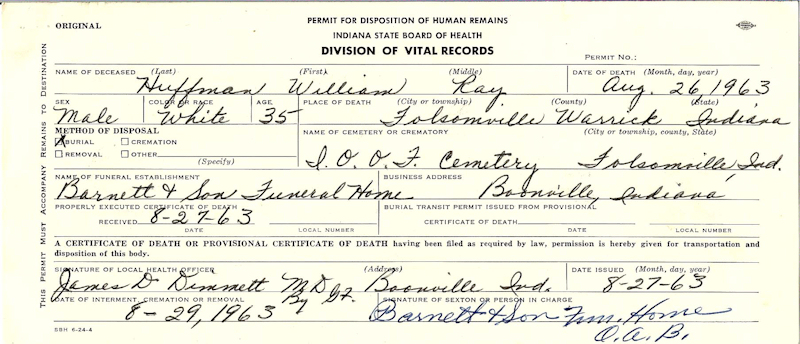 ORIGINAL
PERMIT FOR DISPOSITION OF HUMAN REMAINS
INDIANA STATE BOARD OF HEALTH
DIVISION OF VITAL RECORDS
PERMIT NO.:
THIS PERMIT MUST ACCOMPANY REMAINS TO DESTINATION
NAME OF DECEASED (Last) (First) (Middle) DATE OF DEATH (Month, day, year)
Huffman William Ray Aug. 26, 1963
SEX COLOR OR RACE AGE PLACE OF DEATH (City or township) (County) (State)
Male White 35 Folsomville Warrick Indiana
METHOD OF DISPOSAL NAME OF CEMETERY OR CREMATORY (City or township, county, State)
X BURIAL CREMATION
REMOVAL OTHER I.O.O.F. Cemetery Folsomville, Ind.
(Specify)
NAME OF FUNERAL ESTABLISHMENT BUSINESS ADDRESS
Barnett & Son Funeral Home Boonville, Indiana
PROPERLY EXECUTED CERTIFICATE OF DEATH BURIAL TRANSIT PERMIT ISSUED FROM PROVISIONAL
RECEIVED 8-27-63 CERTIFICATE OF DEATH.
DATE LOCAL NUMBER DATE LOCAL NUMBER
A CERTIFICATE OF DEATH OR PROVISIONAL CERTIFICATE OF DEATH having been filed as required by law, permission is hereby given for transportation and
disposition of this body.
SIGNATURE OF LOCAL HEALTH OFFICER (Address) DATE ISSUED (Month, day, year)
James D Dimmett M.D. Boonville Ind. 8-27-63
By
DATE OF INTERMENT, CREMATION OR REMOVAL SIGNATURE OF SEXTON OR PERSON IN CHARGE
8-29, 1963 Barnett & Son Fun. Home
O.A.B.
SBH 6-24-4